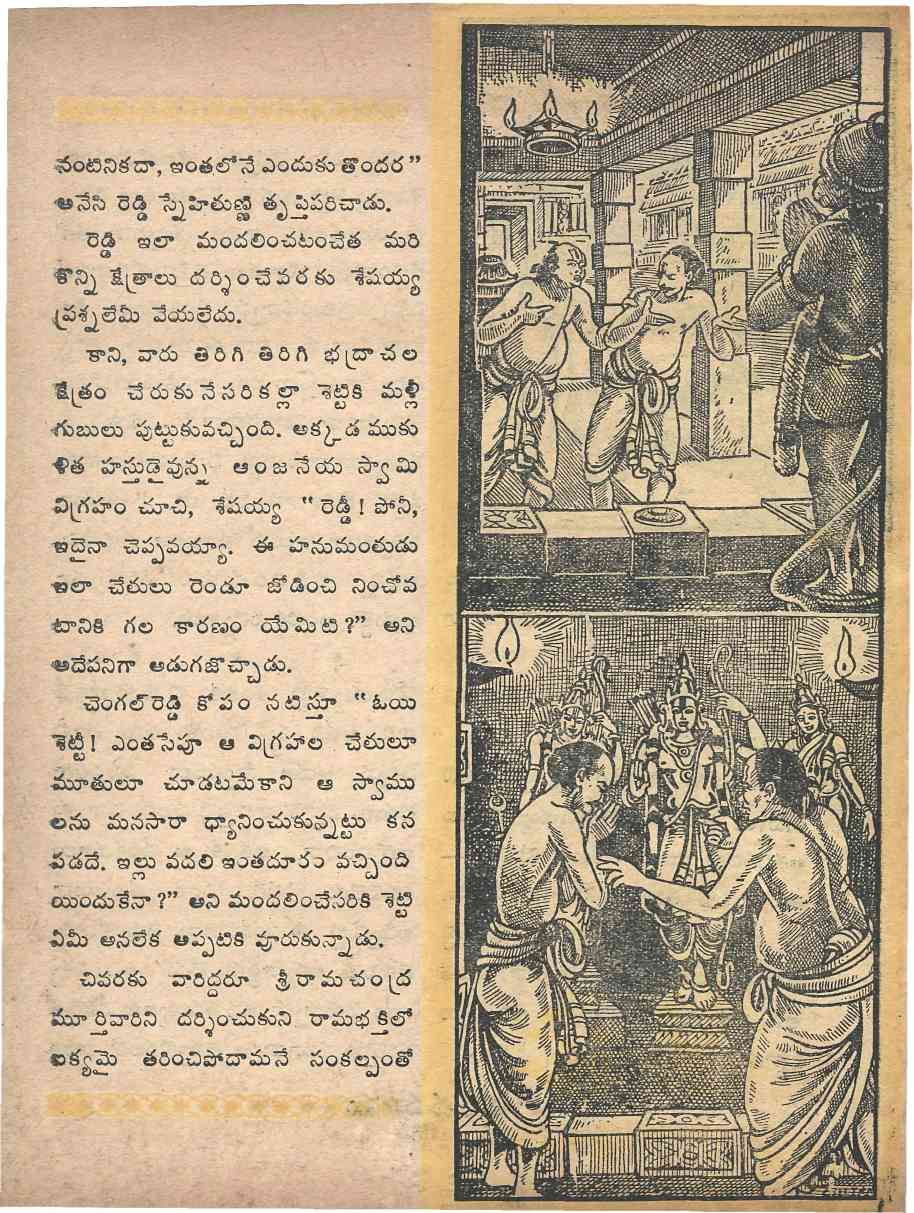 నంటినికదా, ఇంతలోనే ఎందుకు తొందర”
అనేసి రెడ్డి స్నేహితుణ్ణి తృప్తిపరిచాడు.
రెడ్డి ఇలా మందలించటంచేత మరి
కొన్ని క్షేత్రాలు దర్శించేవరకు శేషయ్య
ప్రశ్నలేమీ వేయలేదు.
కాని, వారు తిరిగి తిరిగి భద్రాచల
క్షేత్రం చేరుకునేసరికల్లా శెట్టికి మళ్లీ
గుబులు పుట్టుకువచ్చింది. అక్కడ ముకు
ళిత హస్తుడైవున్న ఆంజనేయ స్వామి
విగ్రహం చూచి, శేషయ్య “రెడ్డీ! పోనీ,
ఇదైనా చెప్పవయ్యా. ఈ హనుమంతుడు
ఇలా చేతులు రెండూ జోడించి నించోవ
టానికి గల కారణం యేమిటి?” అని
అదేపనిగా అడుగజొచ్చాడు.
చెంగల్‌రెడ్డి కోపం నటిస్తూ “ఓయి
శెట్టీ! ఎంతసేపూ ఆ విగ్రహాల చేతులూ
మూతులూ చూడటమేకాని ఆ స్వాము
లను మనసారా ధ్యానించుకున్నట్టు కన
పడదే. ఇల్లు వదలి ఇంతదూరం వచ్చింది
యిందుకేనా?” అని మందలించేసరికి శెట్టి
ఏమీ అనలేక అప్పటికి వూరుకున్నాడు.
చివరకు వారిద్దరూ శ్రీరామచంద్ర
మూర్తివారిని దర్శించుకుని రామభక్తిలో
ఐక్యమై తరించిపోదామనే సంకల్పంతో